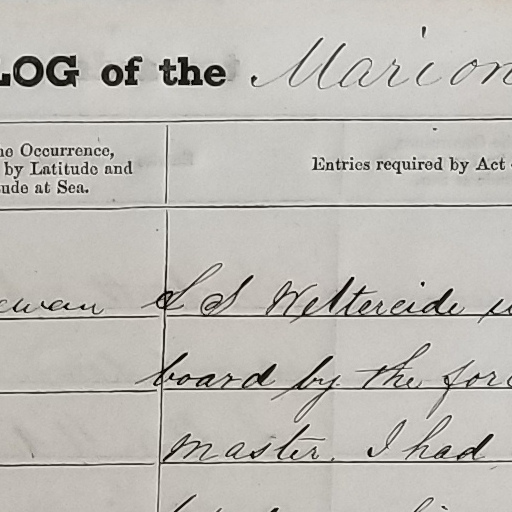 LOG of the Marion
he Occurrence,
by Latitude and
ude at Sea.
Entries required by Act
S S Weltercide
board by the for
master. I had